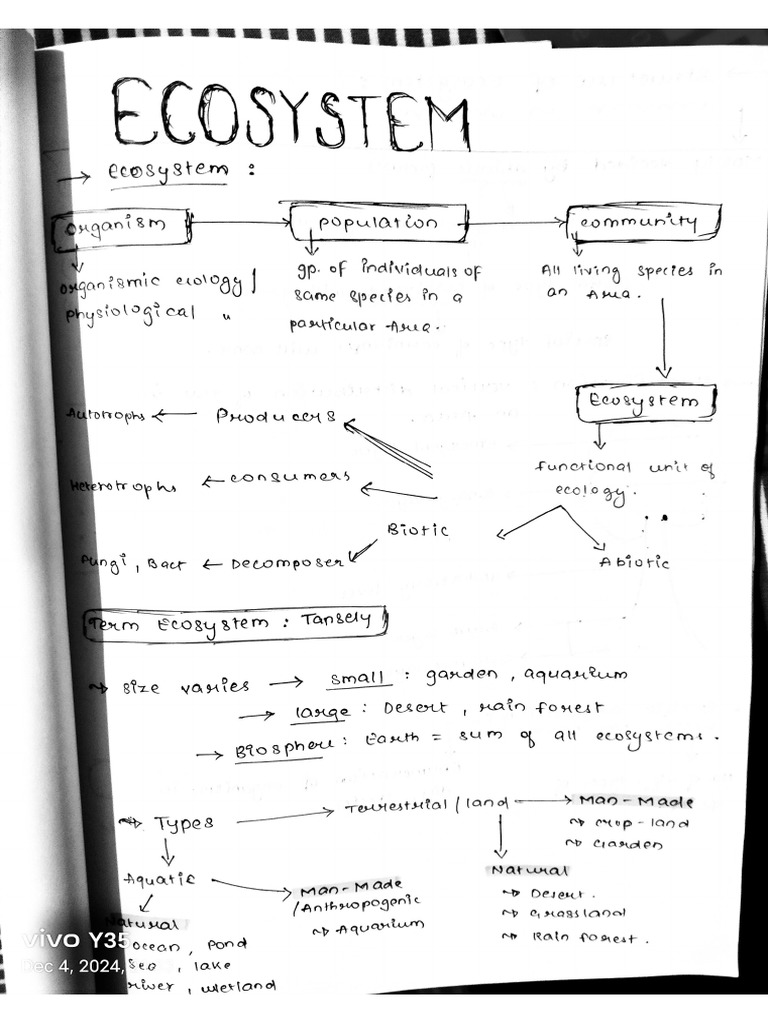 ECOSYSTEM
→ ecosystem :
organism → population → community
organismic ecology /
physiological "
gp. of individuals of
same species in a
particular Area.
All living species in
an Area.
Ecosystem
functional unit of
ecology.
Autotrophs ← Producers
Heterotrophs ← consumers
Biotic
Abiotic
Fungi, Bact ← Decomposer
Term Ecosystem : Tansely
size varies → small : garden, aquarium
→ large : Desert, rain forest
→ Biosphere : Earth = sum of all ecosystems.
Types → Terrestrial / land → Man-Made
crop-land
Garden
Natural
Desert.
Grassland
Rain forest.
Aquatic
Man-Made
/Anthropogenic
Aquarium
Natural
ocean, pond
Sea, lake
river, wetland
vivo Y35
Dec 4, 2024,